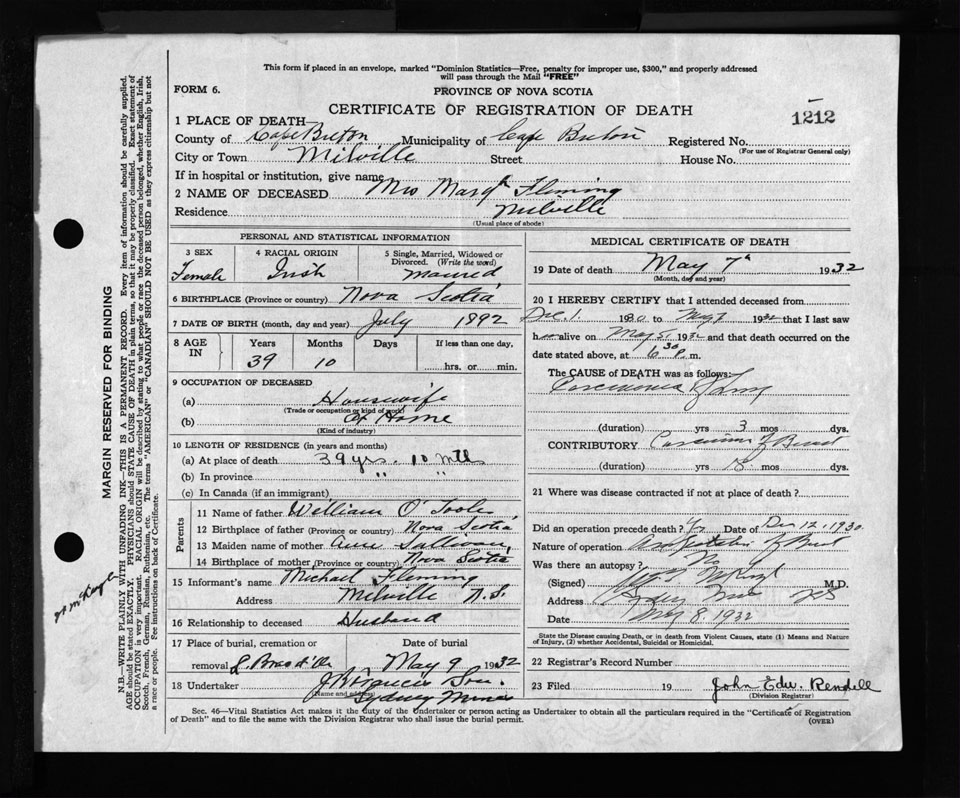 This form if placed in an envelope, marked "Dominion Statistics—Free, penalty for improper use, $300," and properly addressed
will pass through the Mail "FREE"
FORM 6.
PROVINCE OF NOVA SCOTIA
CERTIFICATE OF REGISTRATION OF DEATH
1212
1 PLACE OF DEATH
County of Cape Breton Municipality of Cape Breton Registered No.
(For use of Registrar General only)
City or Town Milville Street House No.
If in hospital or institution, give name
2 NAME OF DECEASED Mrs Margt Fleming
Residence Milville
(Usual place of abode)
PERSONAL AND STATISTICAL INFORMATION
3 SEX Female
4 RACIAL ORIGIN Irish
5 Single, Married, Widowed or Divorced. (Write the word) Married
6 BIRTHPLACE (Province or country) Nova Scotia
7 DATE OF BIRTH (month, day and year) July 1892
8 AGE IN Years Months Days If less than one day,
39 10 hrs. or min.
9 OCCUPATION OF DECEASED
(a) Housewife
(Trade or occupation or kind of work)
(b) At Home
(Kind of industry)
10 LENGTH OF RESIDENCE (in years and months)
(a) At place of death 39 yrs. 10 mths
(b) In province " "
(c) In Canada (if an immigrant)
Parents
11 Name of father William O'Toole
12 Birthplace of father (Province or country) Nova Scotia
13 Maiden name of mother Ann Sullivan
14 Birthplace of mother (Province or country) Nova Scotia
15 Informant's name Michael Fleming
Address Milville N.S.
16 Relationship to deceased Husband
17 Place of burial, cremation or removal L. Bras d'Or
Date of burial May 9 1932
18 Undertaker Son.
(Name and address) Sydney Mines
MEDICAL CERTIFICATE OF DEATH
19 Date of death May 7th 1932
(Month, day and year)
20 I HEREBY CERTIFY that I attended deceased from
Dec. 1 1930 to May 7 1932 that I last saw
her alive on May 5 1932 and that death occurred on the
date stated above, at 6.30 P. m.
The CAUSE of DEATH was as follows:
Carcinoma of Lung
(duration) yrs 3 mos dys.
CONTRIBUTORY Carcinoma of Breast
(duration) yrs 18 mos dys.
21 Where was disease contracted if not at place of death?
Did an operation precede death? Yes Date of Dec 12, 1930
Nature of operation Amputation of Breast
Was there an autopsy? No
(Signed) M.D.
Address Sydney Mines NS
Date May 8. 1932
State the Disease causing Death, or in death from Violent Causes, state (1) Means and Nature
of Injury, (2) whether Accidental, Suicidal or Homicidal.
22 Registrar's Record Number
23 Filed 19 John Edw. Rendell
(Division Registrar)
Sec. 46—Vital Statistics Act makes it the duty of the Undertaker or person acting as Undertaker to obtain all the particulars required in the "Certificate of Registration
of Death" and to file the same with the Division Registrar who shall issue the burial permit. (OVER)
MARGIN RESERVED FOR BINDING
N.B.—WRITE PLAINLY WITH UNFADING INK—THIS IS A PERMANENT RECORD. Every item of information should be carefully supplied.
AGE should be stated EXACTLY. PHYSICIANS should STATE CAUSE OF DEATH in plain terms, so that it may be properly classified. Exact statement of
OCCUPATION is very important. RACIAL ORIGIN will be described by stating to what people or race the deceased person belonged, whether English, Irish,
Scotch, French, German, Russian, Ruthenian, etc. The terms "AMERICAN" or "CANADIAN" SHOULD NOT BE USED as they express citizenship but not
a race or people. See instructions on back of Certificate.